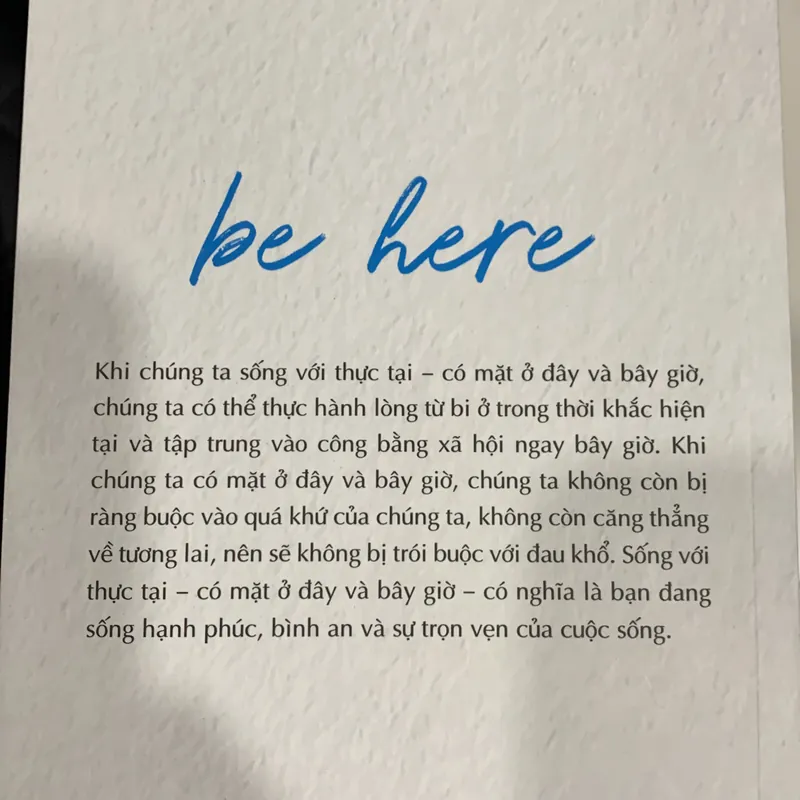 be here
Khi chúng ta sống với thực tại – có mặt ở đây và bây giờ,
chúng ta có thể thực hành lòng từ bi ở trong thời khắc hiện
tại và tập trung vào công bằng xã hội ngay bây giờ. Khi
chúng ta có mặt ở đây và bây giờ, chúng ta không còn bị
ràng buộc vào quá khứ của chúng ta, không còn căng thẳng
về tương lai, nên sẽ không bị trói buộc với đau khổ. Sống với
thực tại – có mặt ở đây và bây giờ – có nghĩa là bạn đang
sống hạnh phúc, bình an và sự trọn vẹn của cuộc sống.